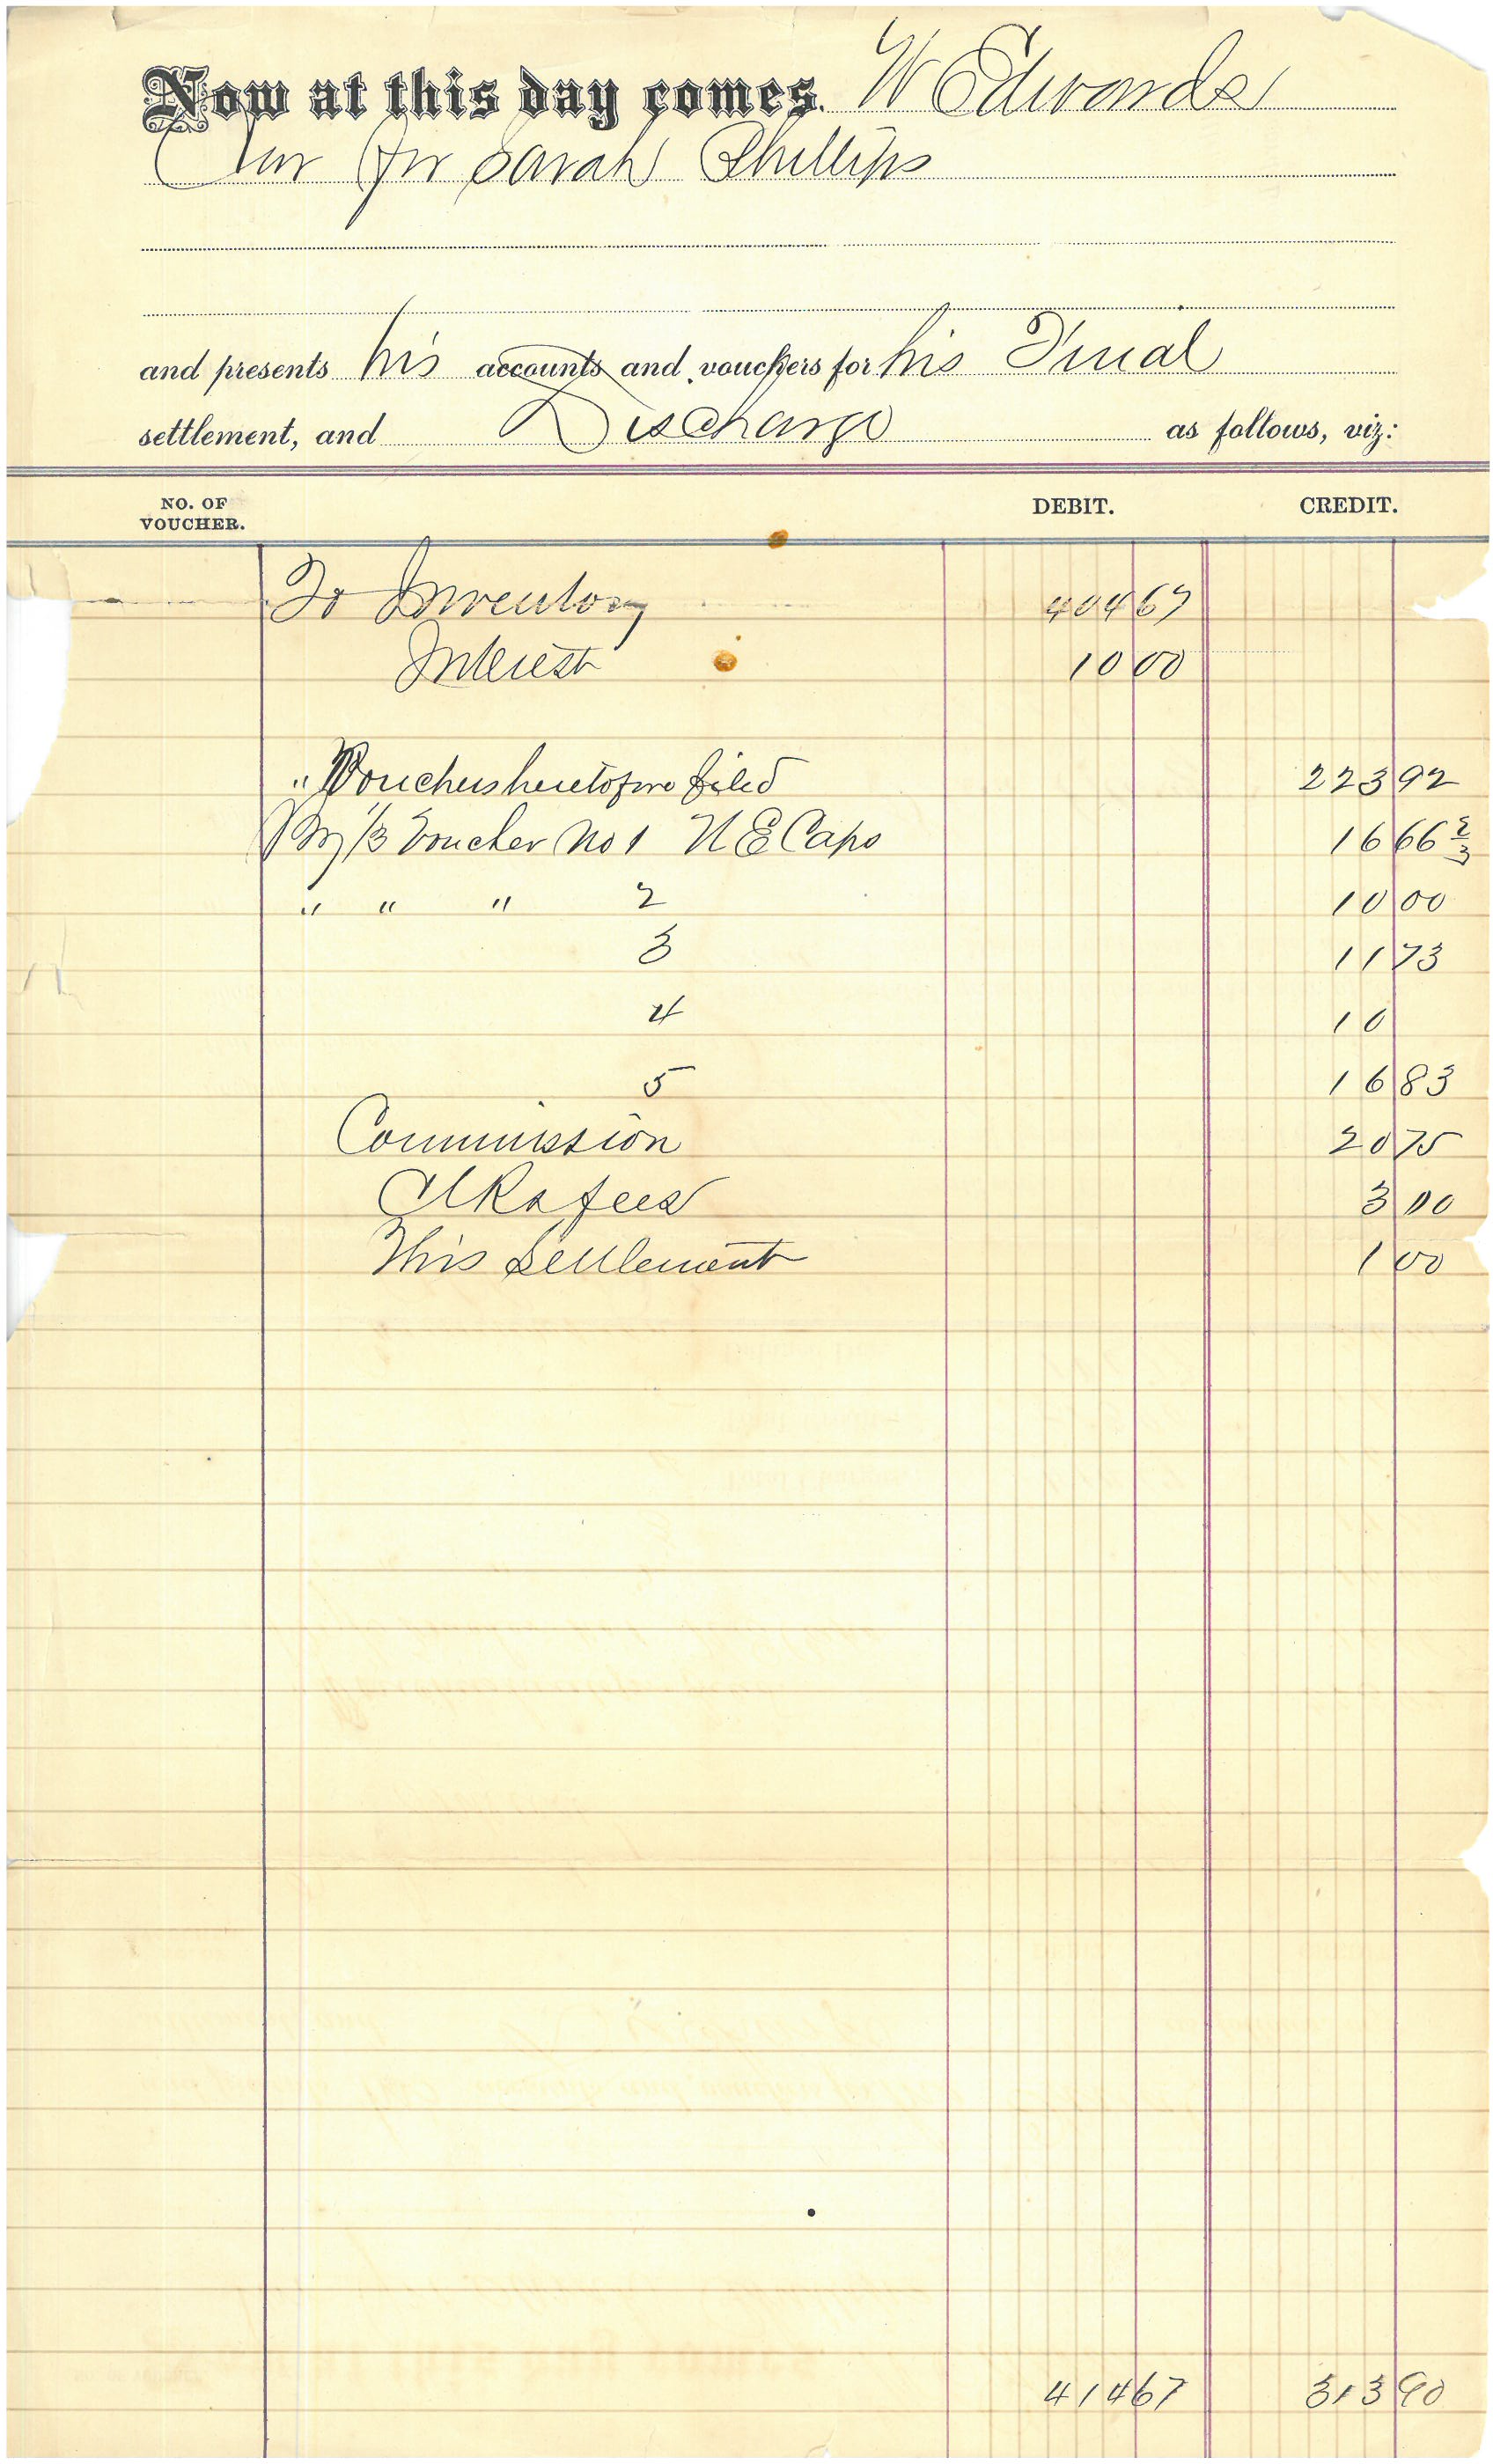 Now at this day comes. W Edwards
Cur for Sarah Phillips
and presents his accounts and vouchers for his Final
settlement, and Discharge as follows, viz:
NO. OF VOUCHER. DEBIT. CREDIT.
To Inventory 404 67
Interest 10 00
" Vouchers heretofore filed 223 92
By 1/3 Voucher No 1 N E Caps 16 66 2/3
" " " 2 10 00
3 11 73
4 10
5 16 83
Commission 20 75
Clks fees 3 00
This Settlement 1 00
414 67 313 90